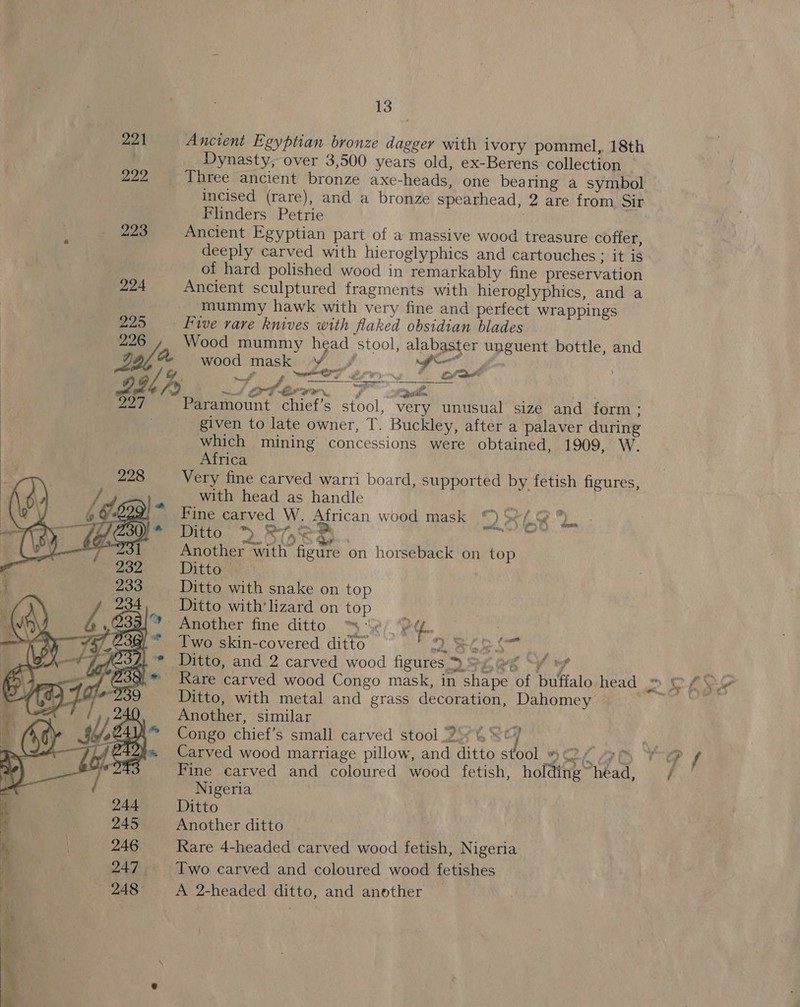 13
221 Ancient Egyptian bronze dagger with ivory pommel, 18th
Dynasty, over 3,500 years old, ex-Berens collection
222 Three ancient bronze axe-heads, one bearing a symbol
incised (rare), and a bronze spearhead, 2 are from Sir
Flinders Petrie
223 Ancient Egyptian part of a massive wood treasure coffer,
deeply carved with hieroglyphics and cartouches; it is
of hard polished wood in remarkably fine preservation
224 Ancient sculptured fragments with hieroglyphics, and a
mummy hawk with very fine and perfect wrappings
225 Five rare knives with flaked obsidian blades
226 Wood mummy head stool, alabaster unguent bottle, and
wood mask
227 Paramount chief's stool, very unusual size and form;
given to late owner, T. Buckley, after a palaver during
which mining concessions were obtained, 1909, W.
Africa
228 Very fine carved warri board, supported by fetish figures,
with head as handle
229 Fine carved W. African wood mask
230 Ditto
231 Another with figure on horseback on top
232 Ditto
233 Ditto with snake on top
234 Ditto with lizard on top
235 Another fine ditto
236 Two skin-covered ditto
237 Ditto, and 2 carved wood figures
238 Rare carved wood Congo mask, in shape of buffalo head
239 Ditto, with metal and grass decoration, Dahomey
240 Another, similar
241 Congo chief's small carved stool
242 Carved wood marriage pillow, and ditto stool
243 Fine carved and coloured wood fetish, holding head,
Nigeria
244 Ditto
245 Another ditto
246 Rare 4-headed carved wood fetish, Nigeria
247 Two carved and coloured wood fetishes
248 A 2-headed ditto, and another